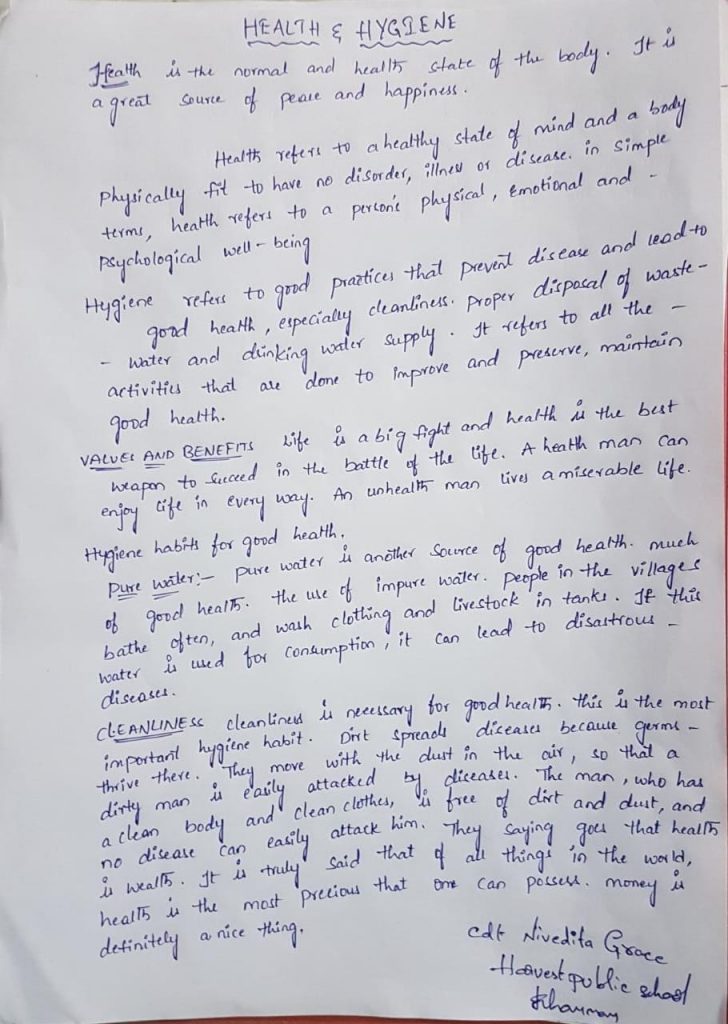 HEALTH & HYGIENE
Health is the normal and health state of the body. It is
a great source of peace and happiness.
Health refers to a healthy state of mind and a body
Physically fit to have no disorder, illness or disease. in simple
terms, health refers to a person's physical, emotional and -
psychological well-being
Hygiene refers to good practices that prevent disease and lead to
good health, especially cleanliness. proper disposal of waste-
- water and drinking water supply. It refers to all the -
activities that are done to improve and preserve, maintain
good health.
VALUES AND BENEFITS Life is a big fight and health is the best
weapon to succeed in the battle of the life. A health man can
enjoy life in every way. An unhealth man lives a miserable life.
Hygiene habits for good health.
Pure water:- pure water is another source of good health. much
of good health. the use of impure water. people in the villages
bathe often, and wash clothing and livestock in tanks. If this
water is used for consumption, it can lead to disastrous -
diseases.
CLEANLINESS cleanliness is necessary for good health. this is the most
important hygiene habit. Dirt spreads diseases because germs -
thrive there. They move with the dust in the air, so that a
dirty man is easily attacked by diseases. The man, who has
a clean body and clean clothes, is free of dirt and dust, and
no disease can easily attack him. They saying goes that health
is wealth. It is truly said that of all things in the world,
health is the most precious that one can possess. money is
definitely a nice thing.
cdt Nivedita Grace
Harvest public school